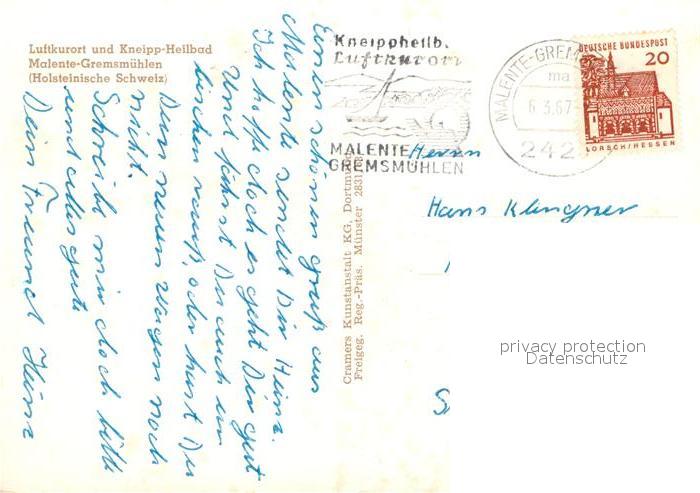 Luftkurort und Kneipp-Heilbad
Malente-Gremsmühlen
(Holsteinische Schweiz)
Einen schönen Gruß aus
Malente sendet Dir Heinz.
Ich hoffe doch es geht Dir gut
Und fährst Du auch ein
bischen raus, oder hast Du
Dein neuen Wagen noch
nicht.
Schreib mir doch bitte
und alles gute
Dein Freund Heinz
Cramers Kunstanstalt KG, Dortmund
Freigeg. Reg.-Präs. Münster
Kneippheilb.
Luftkurort
MALENTE
GREMSMÜHLEN
MALENTE-GREM
ma
6.3.67
242
DEUTSCHE BUNDESPOST
20
LORSCH/HESSEN
Herrn
Hans Klingner
privacy protection
Datenschutz